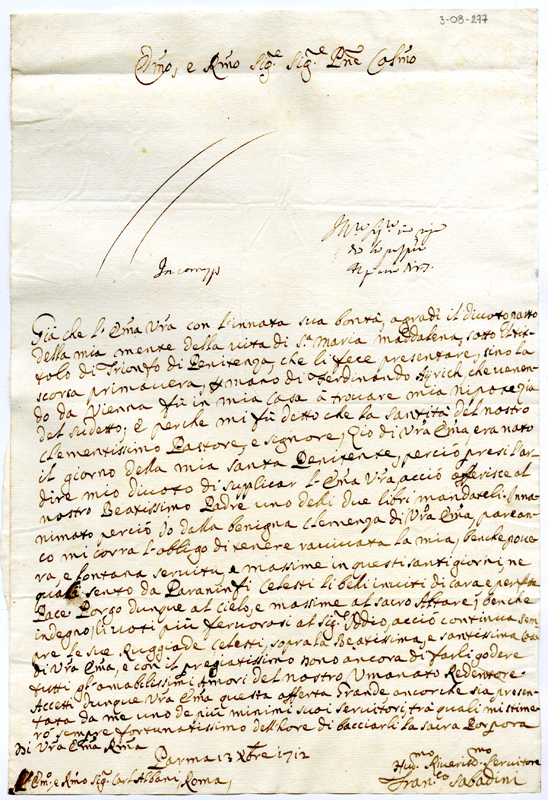 3-08-277
Emo, e Rmo Sig.e Sig.e Pne Colmo
In comyp
Già che l'Ema Vra con l'innata sua bontà, agradì il divoto parto
della mia mente della vita di Sta Maria Maddalena, sotto il ti-
tolo di Trionfo di Penitenza, che li fece presentare, sino la
scorsa primavera, per mano di Ferdinando che venen-
do da Vienna fù in mia casa à trovare mia nipote Zia
del sudetto; E perche mi fù detto che la Santità del nostro
clementissimo Pastore, e signore, Zio di Vra Ema, era nato
il giorno della mia Santa Penitente, perciò presi l'ar
dire mio divoto di suplicar l'Ema Vra acciò offerisce al
nostro Beatissimo Padre uno delli due libri mandateli. Inna
nimato perciò Io dalla benigna clemenza di Vra Ema, pare an-
co mi corra l'obligo di tenere ravivata la mia, benche pove
ra, e lontana servitù, e massime in questi santi giorni, ne
quali sento da Paraninfi Celesti li bili inviti di cara e perfetta
Pace Porgo dunque al cielo, e massime al sacro Altare, benche
indegno, li voti più fervorosi al Sig.r Iddio, acciò continua sem
pre le sue Ruggiade Celesti, sopra la Beatissima, e santissima Casa
di Vra Ema, e con il pregiatissimo dono ancora di farli godere
tutti gl'amabilissimi Amori del nostro Umanato Redentore.
Accetti dunque Vra Ema questa offerta grande ancorche sia presen-
tata da me uno de più minimi suoi servitori, trà quali mi stime-
rò sempre fortunatissimo dell'ore di bacciarli la sacra Porpora
Di Vra Ema Rma
Parma 13 Xbre 1712
Emo. e Rmo Sig. Carl Albani, Roma,
Hu.mo Riverit.mo Servitore
Fran.co Sabadini